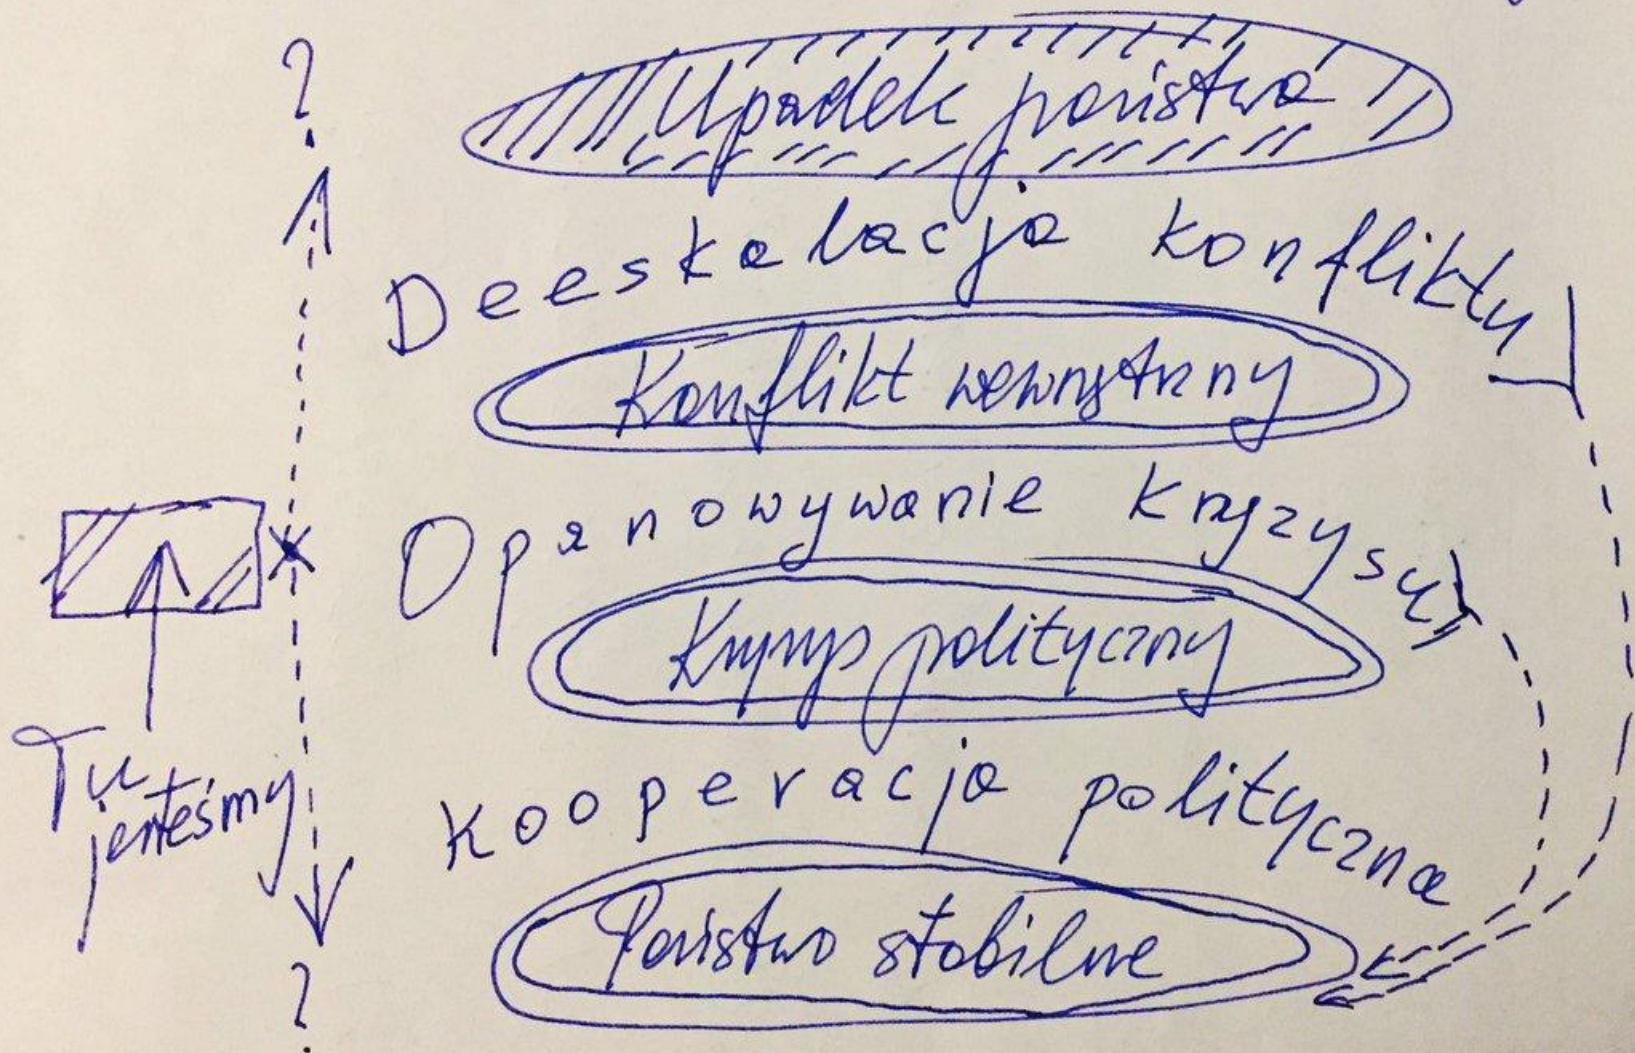 ?
Upadek państwa
Deeskalacja konfliktu
Konflikt wewnętrzny
Opanowywanie kryzysu
Kryzys polityczny
Tu
jesteśmy
Kooperacja polityczna
Państwo stabilne
?